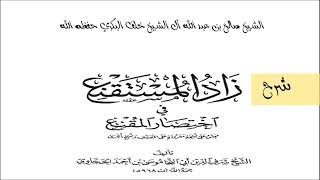 الشيخ صالح بن عبد الله آل الشيخ خلف البكري حفظه الله
شرح
زاد المستقنع
في
اختصار المقنع
تأليف
الشيخ شرف الدين أبي النجا موسى بن أحمد الحجاوي
٩٦٨هـ